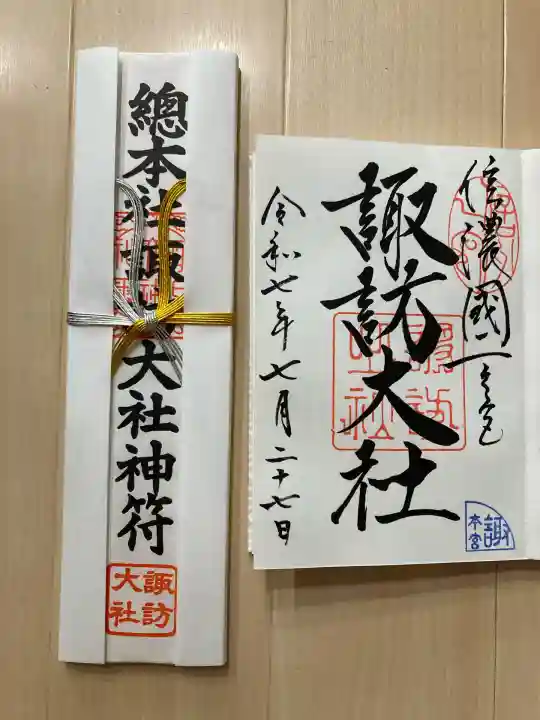 總本社諏訪大社神符
諏訪
大社
信濃國一之宮
諏訪大社
令和七年七月二十七日
諏訪
大社
諏
本宮